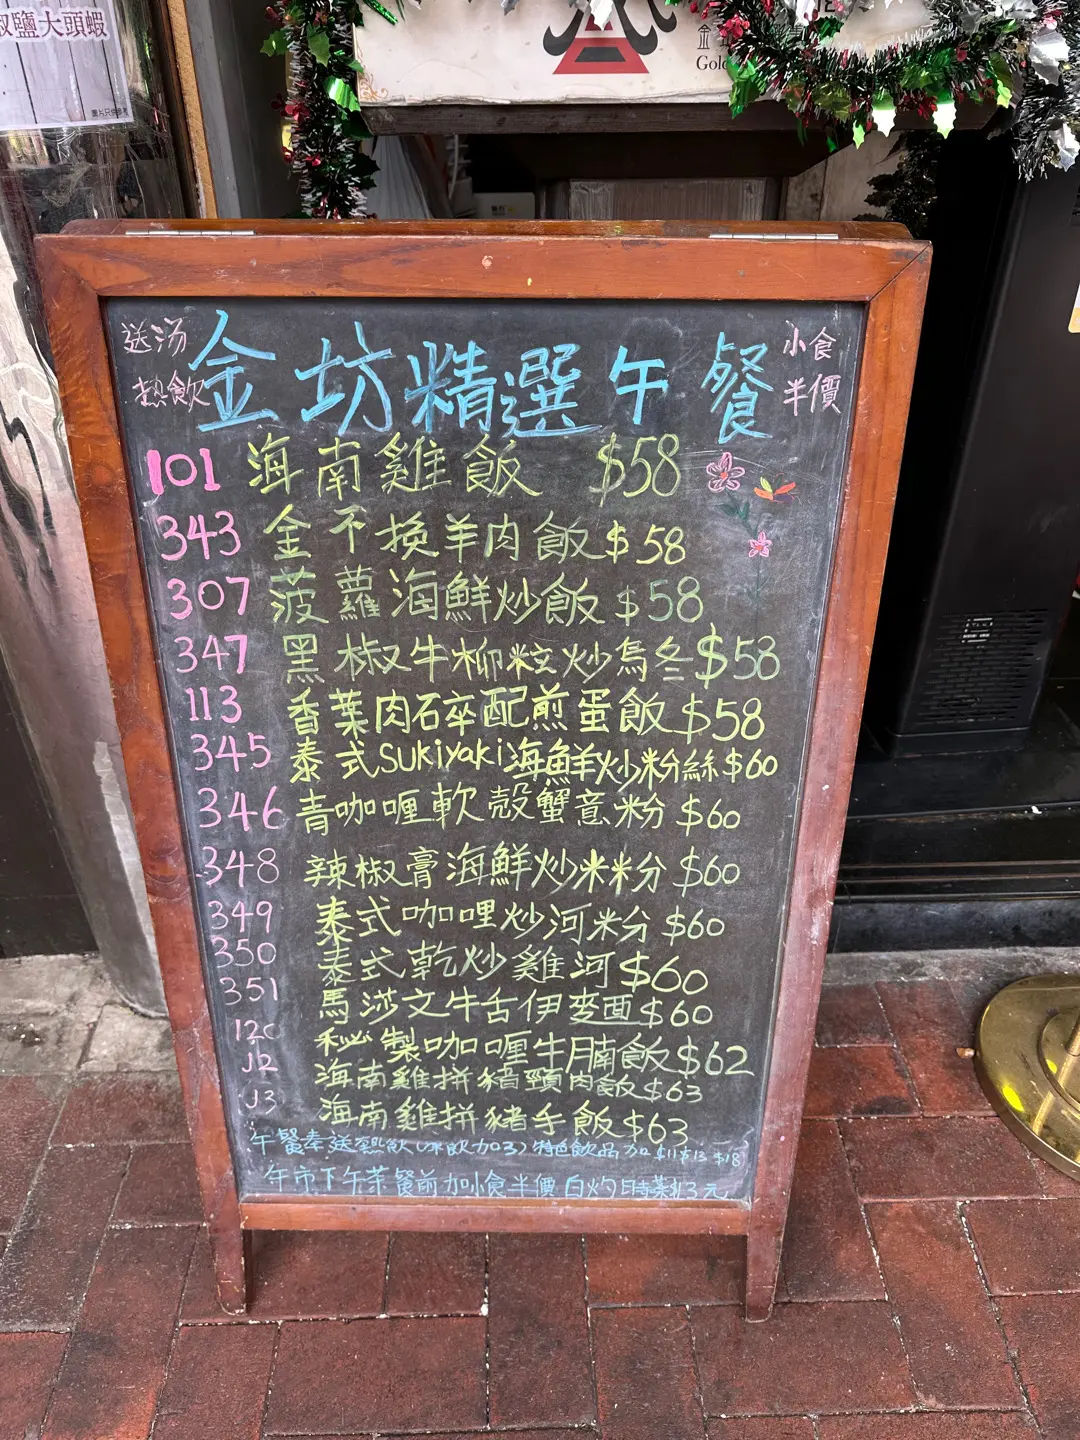 椒鹽大頭蝦
金
Gold
送汤
热飲
金坊精選午餐
小食
半價
101 海南雞飯 $58
343 金不換羊肉飯 $58
307 菠蘿海鮮炒飯 $58
347 黑椒牛柳粒炒烏冬 $58
113 香葉肉碎配煎蛋飯 $58
345 泰式Sukiyaki海鮮炒粉絲 $60
346 青咖喱軟殼蟹意粉 $60
348 辣椒膏海鮮炒米粉 $60
349 泰式咖哩炒河粉 $60
350 泰式乾炒雞河 $60
351 馬莎文牛舌伊麵 $60
120 秘製咖喱牛腩飯 $62
J2 海南雞拼豬頸肉飯 $63
J3 海南雞拼豬手飯 $63
午餐奉送熱飲(冰飲加3)特色飲品加$11 $13 $18
午市下午茶餐前加小食半價 白灼時菜13元